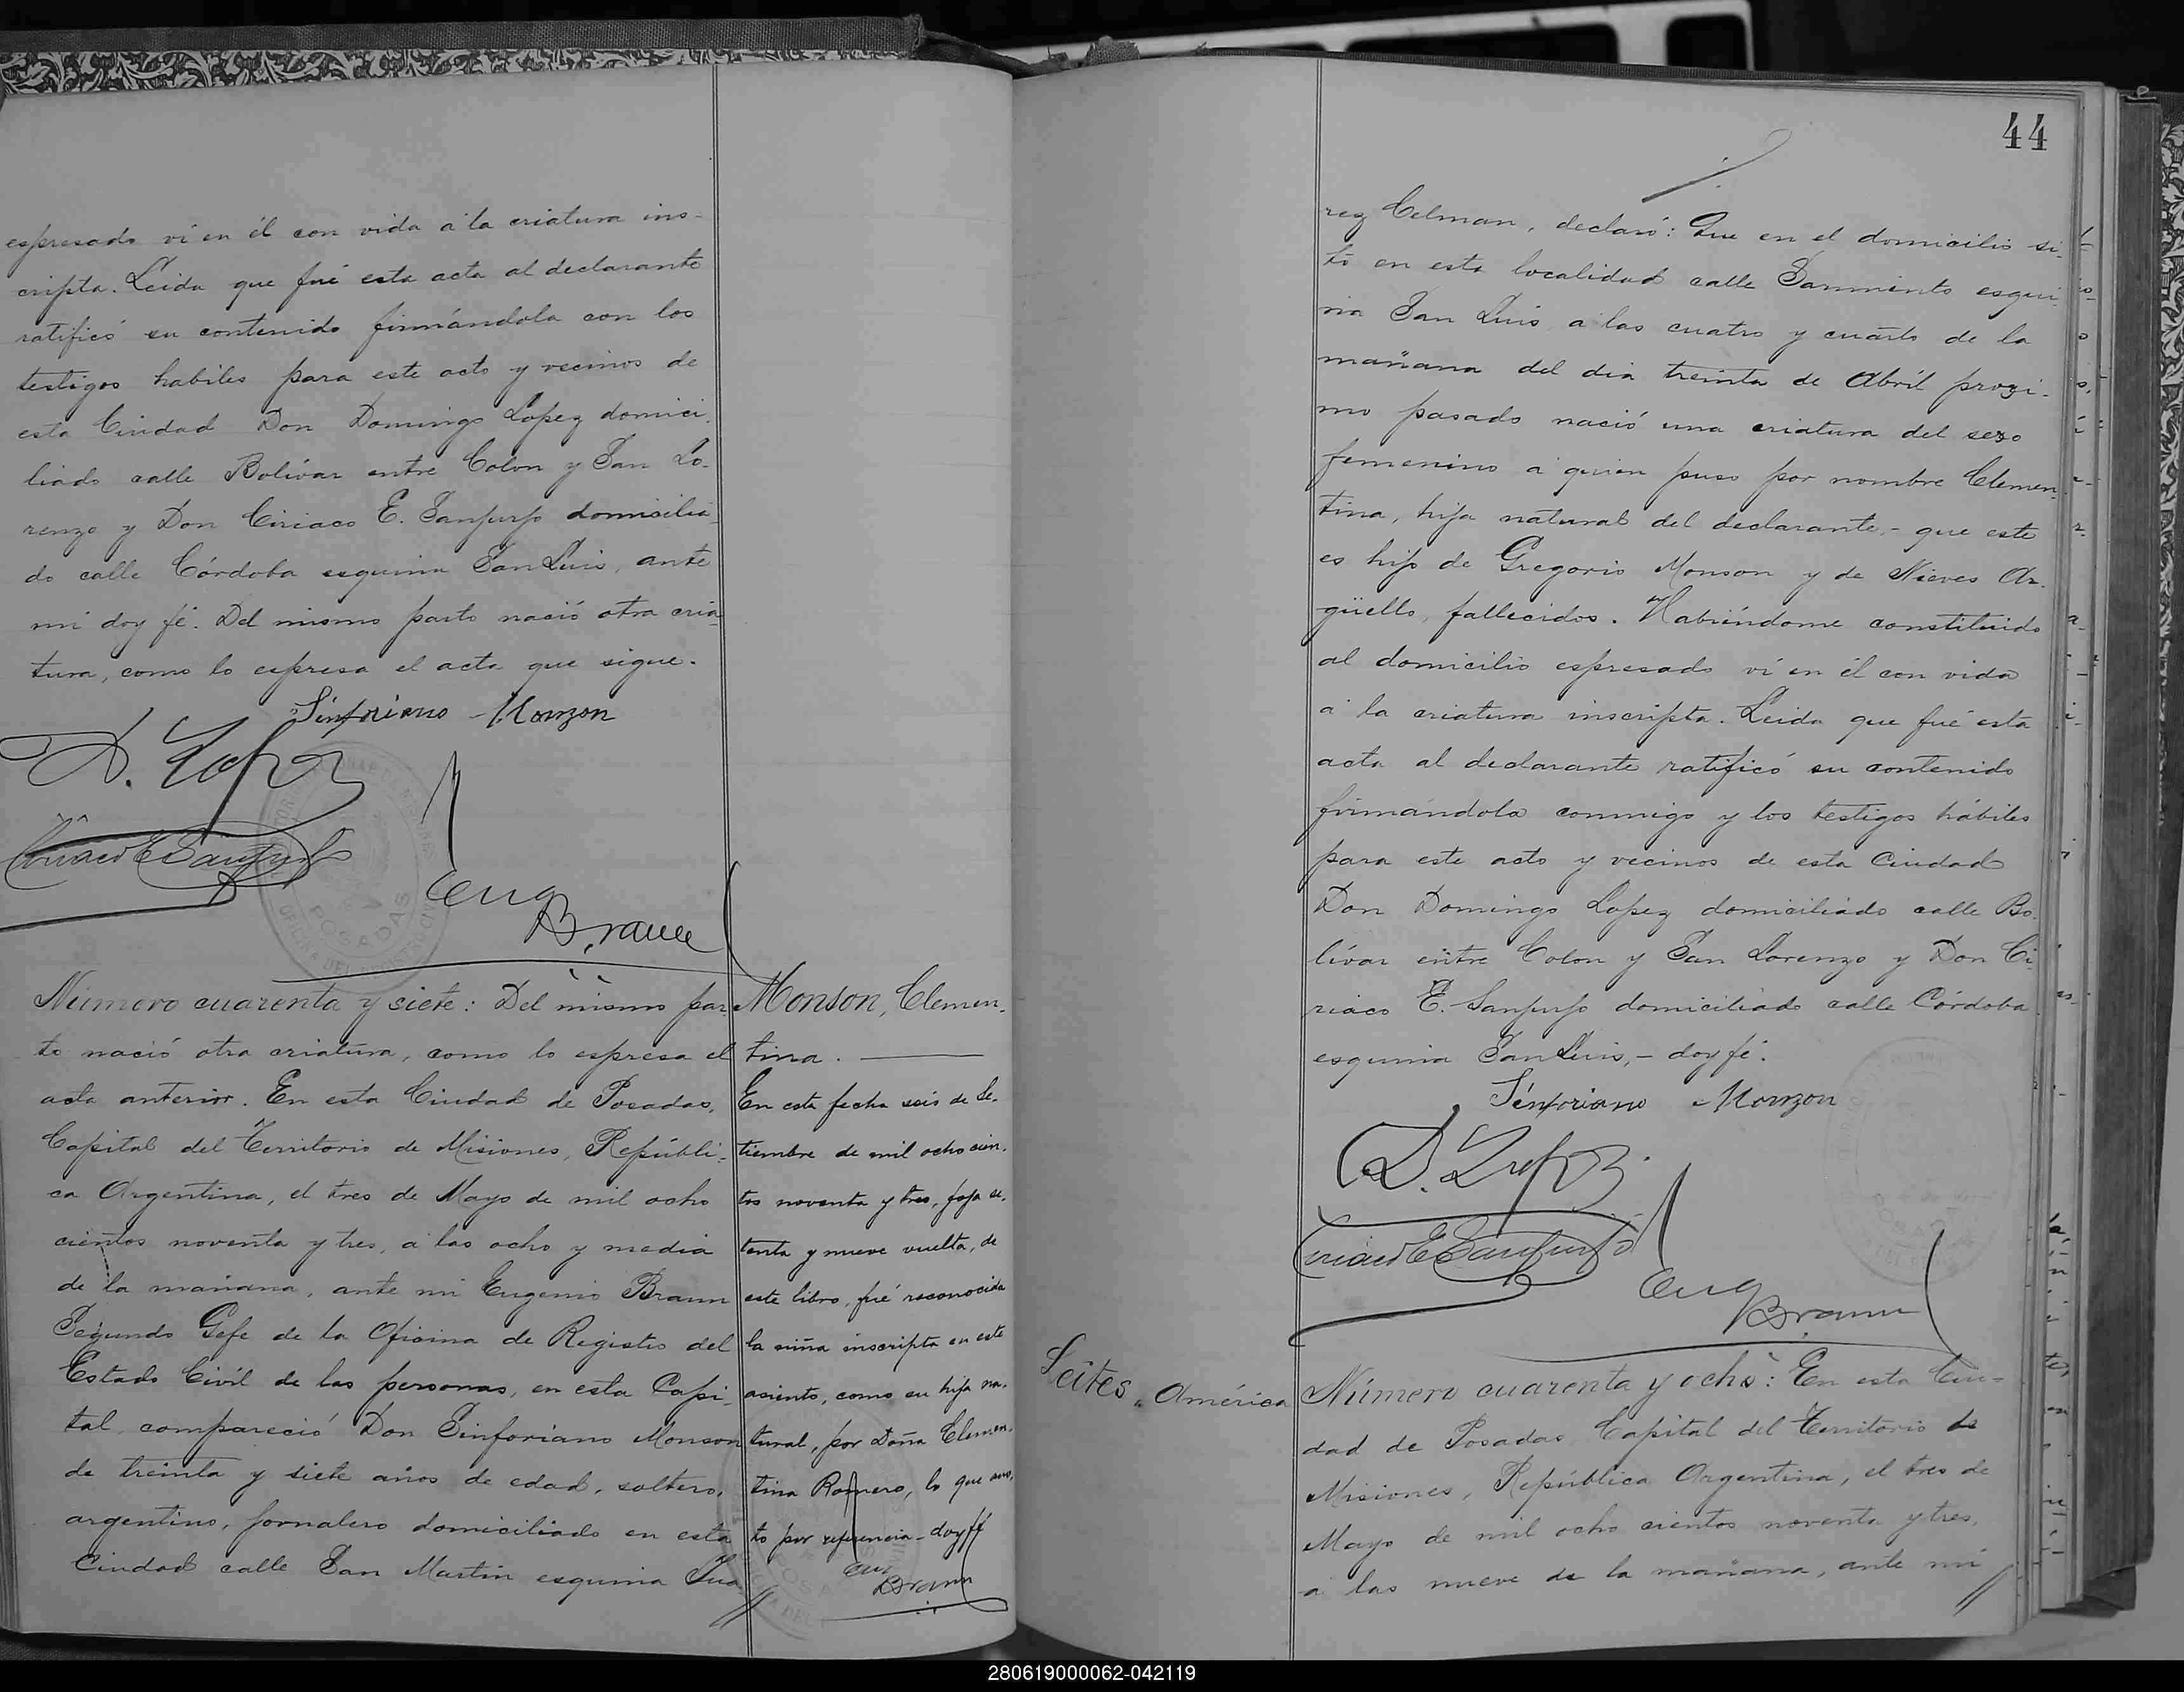 espresado ví en él con vida á la criatura ins-
cripta. Leida que fué esta acta al declarante
ratificó su contenido firmándola con los
testigos habiles para este acto y vecinos de
esta Ciudad Don Domingo Lopez domici.
liado calle Bolívar entre Colon y San Lo-
renzo y Don Ciriaco E. Sanjurjo domicilia
do calle Córdoba esquina San Luis, ante
mí doy fé. Del mismo parto nació otra cria
tura, como lo espresa el acta que sigue.
Sinforiano Monzon
D. Lopez
Ciriaco E Sanjurjo
Eug
Braun
POSADAS
Número cuarenta y siete: Del mismo par-
to nació otra criatura, como lo espresa el
acta anterior. En esta Ciudad de Posadas,
Capital del Territorio de Misiones, Repúbli-
ca Argentina, el tres de Mayo de mil ocho
cientos noventa y tres, á las ocho y media
de la mañana, ante mí Eugenio Braun
Segundo Gefe de la Oficina de Registro del
Estado Civíl de las personas, en esta Capi-
tal, compareció Don Sinforiano Monson
de treinta y siete años de edad, soltero,
argentino, jornalero domiciliado en esta
Ciudad calle San Martin esquina Jua
Monson, Clemen-
tina.
En esta fecha seis de Se-
tiembre de mil ocho cien-
tos noventa y tres, foja se-
tenta y nueve vuelta, de
este libro, fué reconocida
la niña inscripta en este
asiento, como su hija na-
tural, por Doña Clemen-
tina Romero, lo que ano-
to por referencia - doy fé
Eug
Braun
44
rez Celman, declaró: Que en el domicilio si-
to en esta localidad calle Sarmiento esqui
na San Luis, a las cuatro y cuarto de la
mañana del dia treinta de Abríl proxi-
mo pasado nació una criatura del sexo
femenino á quien puso por nombre Clemen
tina, hija natural del declarante,- que este
es hijo de Gregorio Monson y de Nieves Ar-
güello, fallecidos. Habiéndome constituido
al domicilio espresado ví en él con vida
á la criatura inscripta. Leida que fué esta
acta al declarante ratificó su contenido
firmándola conmigo y los testigos hábiles
para este acto y vecinos de esta Ciudad
Don Domingo Lopez domiciliado calle Bo-
lívar entre Colon y San Lorenzo y Don Ci-
riaco E. Sanjurjo domiciliado calle Córdoba
esquina San Luis,- doy fé.
Sinforiano Monzon
D. Lopez
Ciriaco E Sanjurjo
Eug
Braun
América
Número cuarenta y ocho: En esta Ciu-
dad de Posadas, Capital del Territorio de
Misiones, República Argentina, el tres de
Mayo de mil ocho cientos noventa y tres,
á las nueve de la mañana, ante mí
280619000062-042119